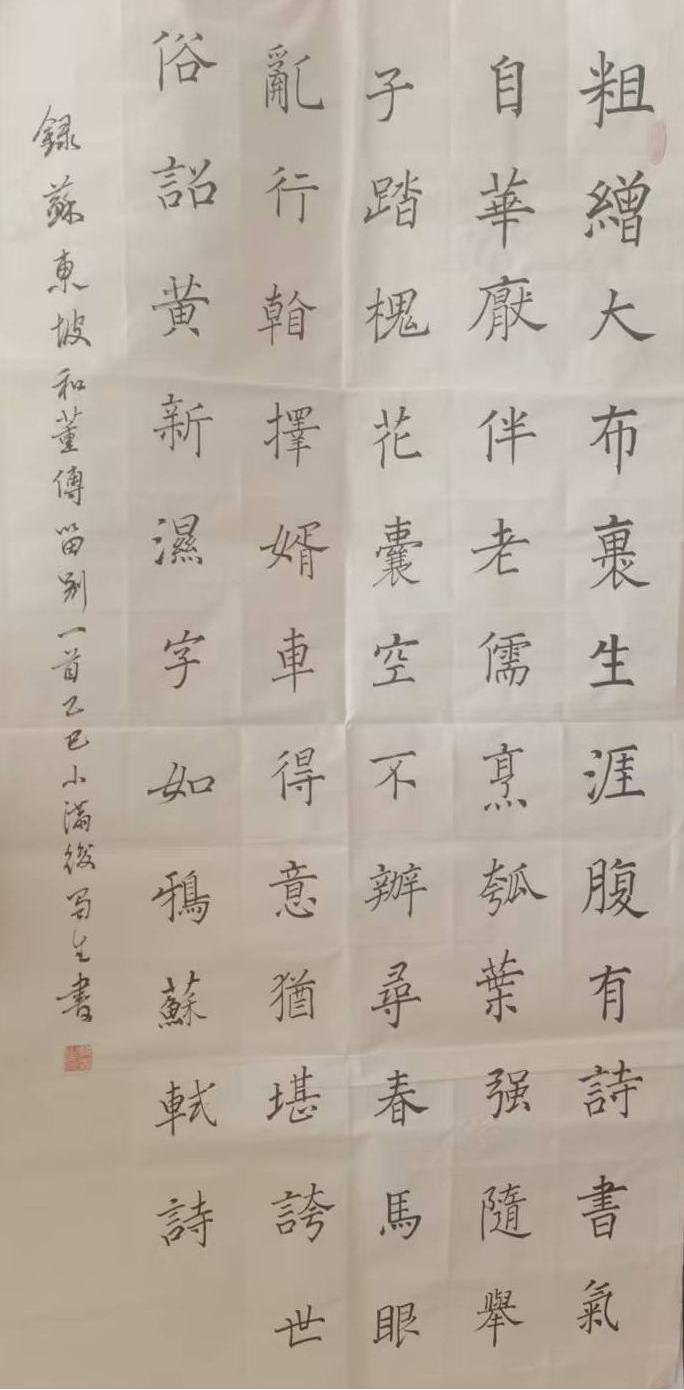 粗繒大布裹生涯腹有詩書氣
自華厭伴老儒烹瓠葉强隨舉
子踏槐花囊空不辦尋春馬眼
亂行看擇婿車得意猶堪誇世
俗詔黄新濕字如鴉蘇軾詩
録蘇東坡和董傳留别一首乙巳小滿後蜀生書